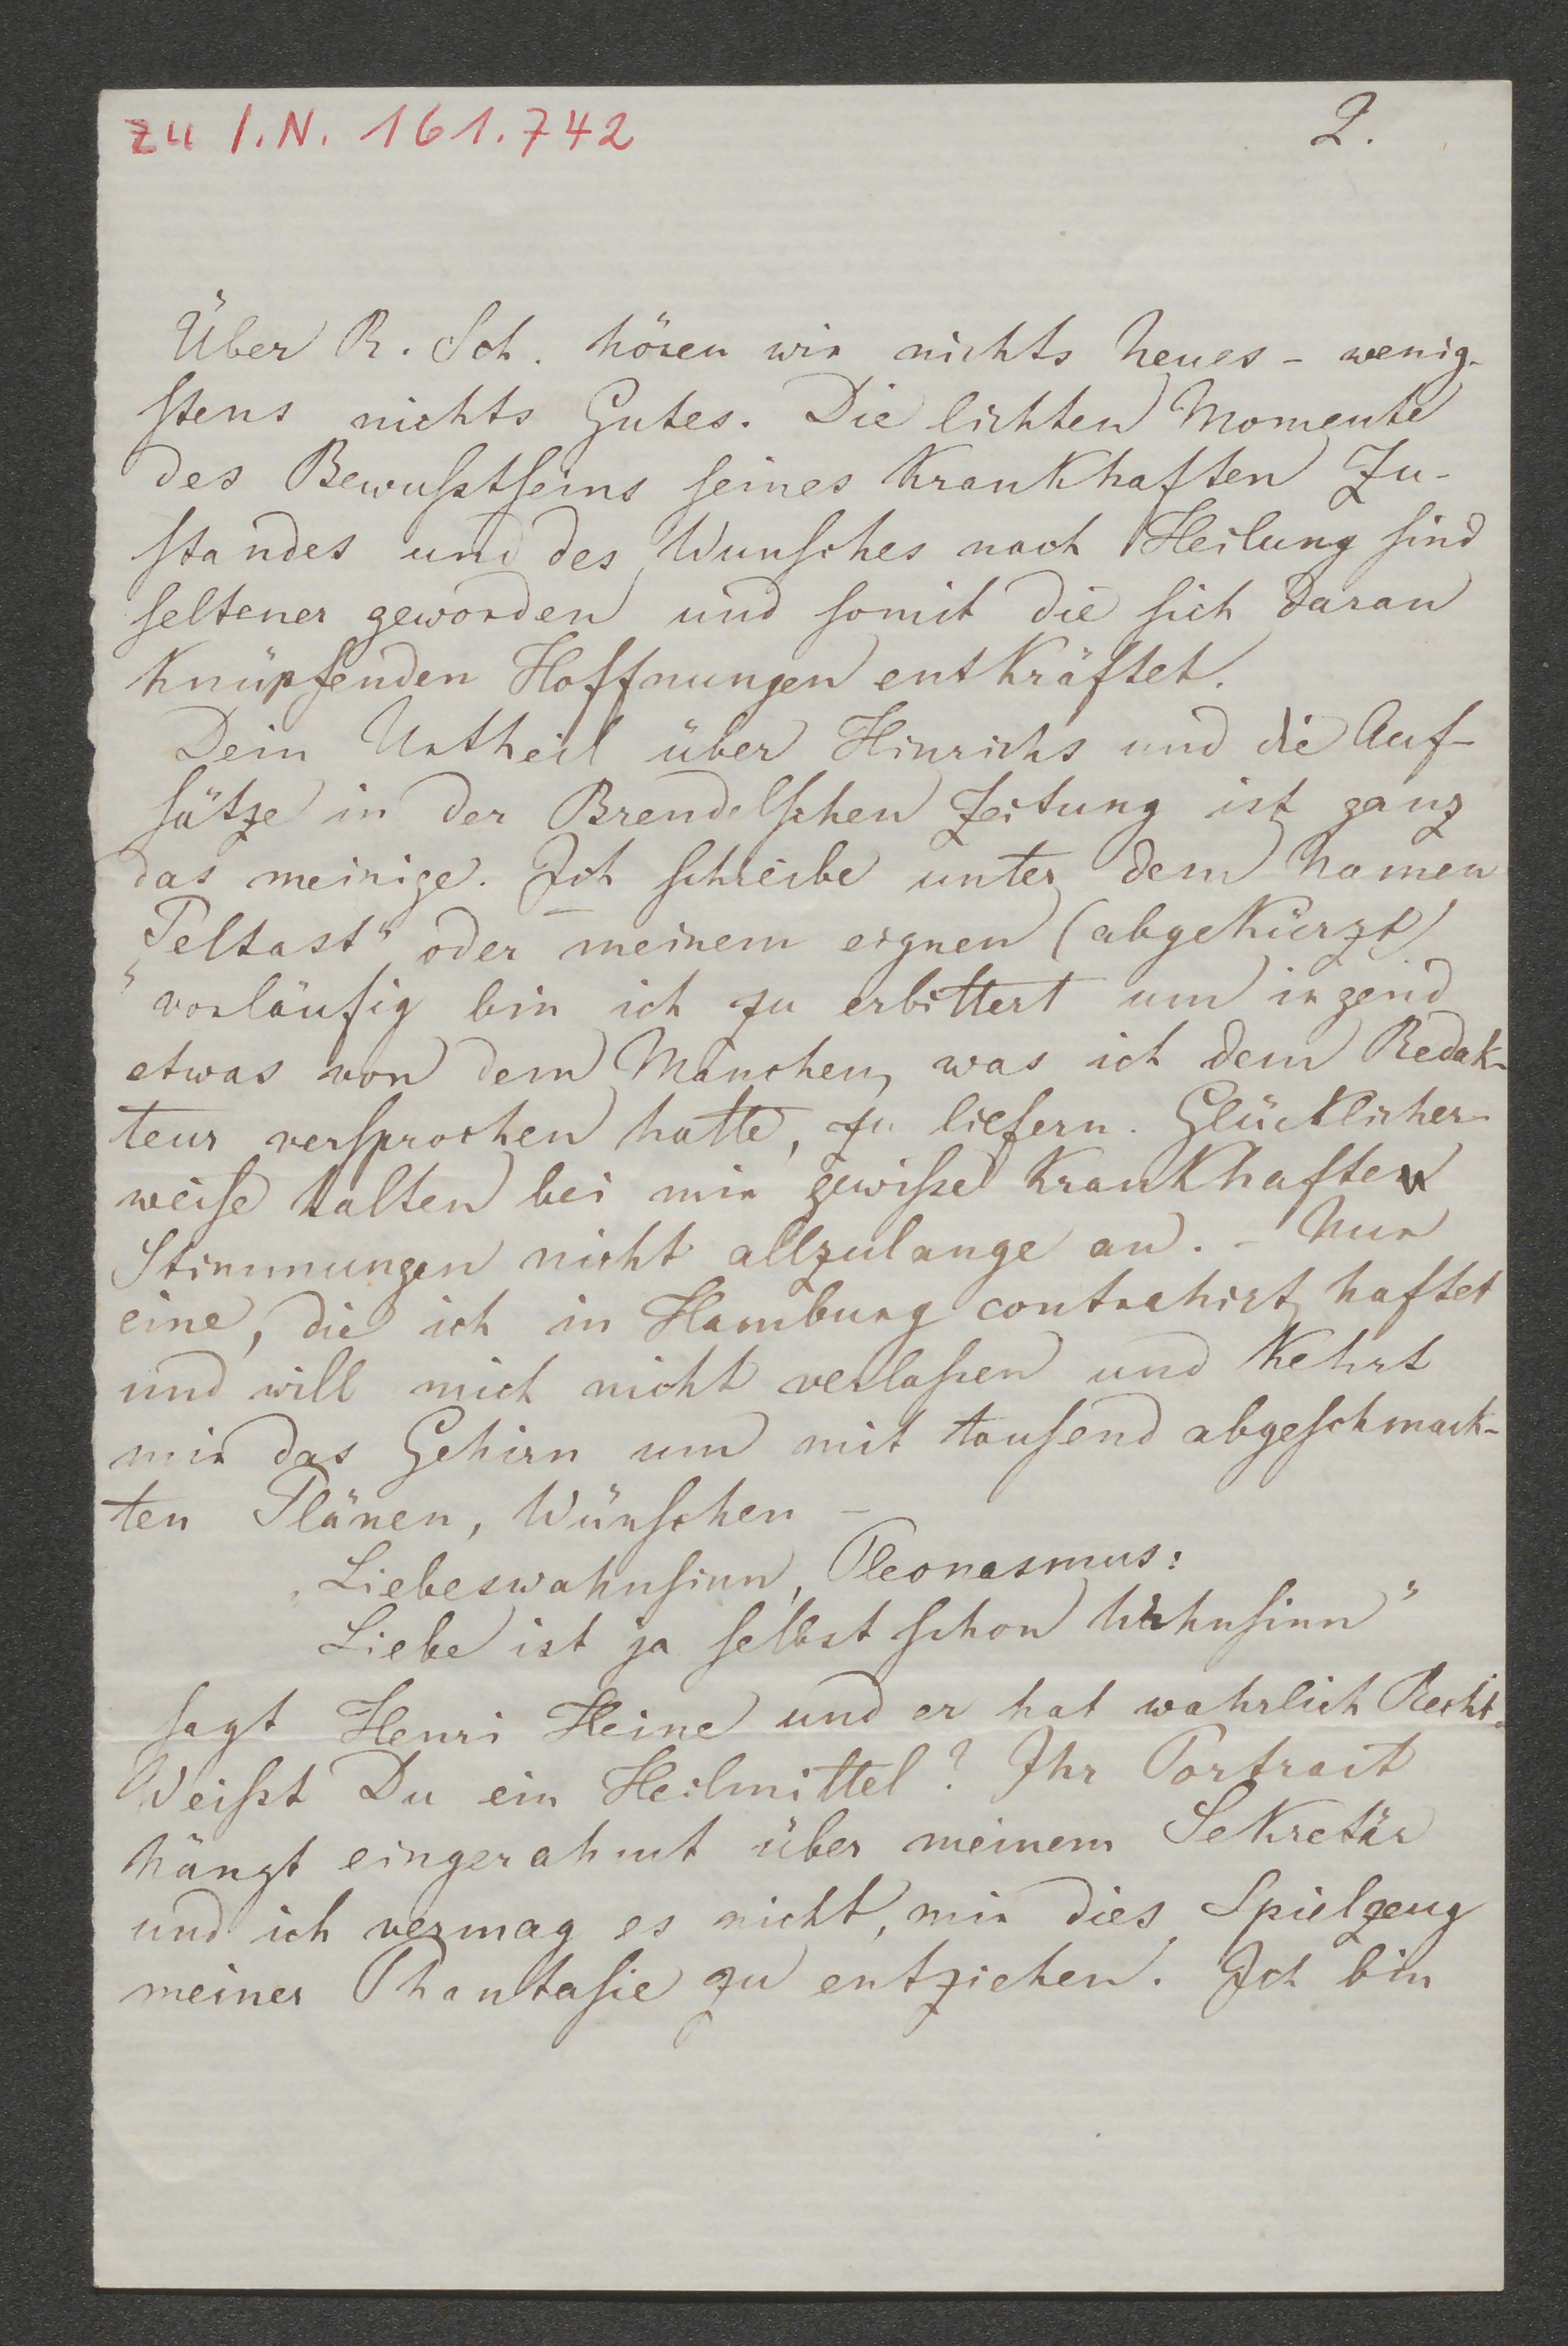 zu I.N. 161.742
2.
Über R. Sch. hören wir nichts Neues - wenig-
stens nichts Gutes. Die lichten Momente
des Bewußtseins seines krankhaften Zu-
standes und des Wunsches nach Heilung sind
seltener geworden und somit die sich daran
knüpfenden Hoffnungen entkräftet.
Dein Urtheil über Hinrichs und die Auf-
sätze in der Brendelschen Zeitung ist ganz
das meinige. Ich schreibe unter dem Namen
„Peltast" oder meinem eignen (abgekürzt)
vorläufig bin ich zu erbittert um irgend
etwas von dem Manchen, was ich dem Redak-
teur versprochen hatte, zu liefern. Glücklicher-
weise halten bei mir gewiße krankhaften
Stimmungen nicht allzulange an. - Nur
eine, die ich in Hamburg contrahirt, haftet
und will mich nicht verlaßen und kehrt
mir das Gehirn um mit tausend abgeschmack-
ten Plänen, Wünschen -
„Liebeswahnsinn, Pleonasmus:
Liebe ist ja selbst schon Wahnsinn"
sagt Henri Heine und er hat wahrlich Recht.
Weißt Du ein Heilmittel? Ihr Portrait
hängt eingerahmt über meinem Sekretär
und ich vermag es nicht, mir dies Spielzeug
meiner Phantasie zu entziehen. Ich bin